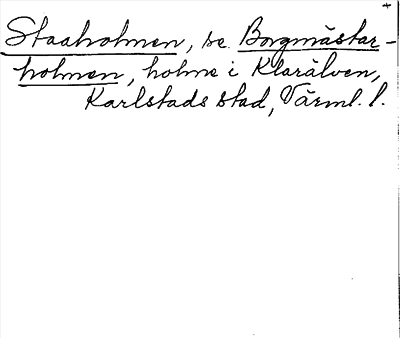 Staaholmen, se Borgmästar-
holmen, holme i Klarälven,
Karlstads stad, Värml. l.